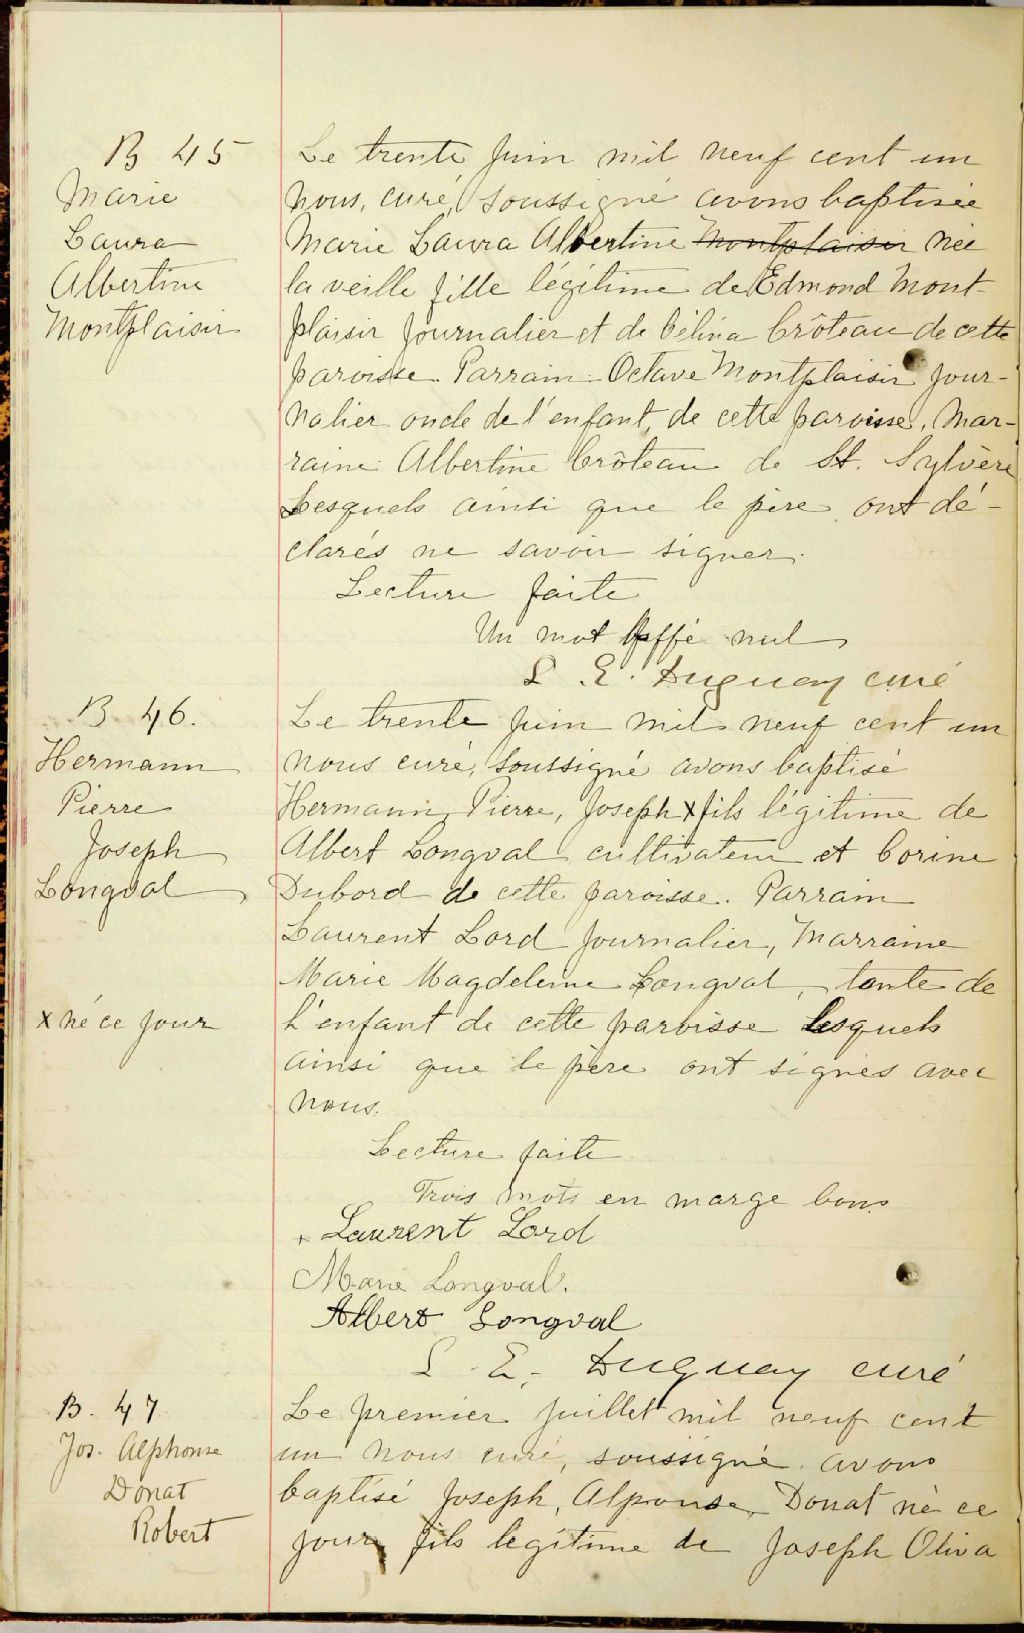 B 45
Marie
Laura
Albertine
Montplaisir
Le trente Juin mil neuf cent un
nous, curé, soussigné avons baptisée
Marie Laura Albertine Montplaisir née
la veille fille légitime de Edmond Mont-
plaisir journalier et de Célina Crôteau de cette
paroisse. Parrain Octave Montplaisir jour-
nalier oncle de l'enfant, de cette paroisse, Mar-
raine Albertine Crôteau de St. Sylvère
Lesquels ainsi que le père ont dé-
clarés ne savoir signer.
Lecture faite
Un mot biffé nul
L. E. Duguay curé
B. 46.
Hermann
Pierre
Joseph
Longval
X né ce jour
Le trente Juin mil neuf cent un
nous curé, soussigné avons baptisé
Hermann, Pierre, Joseph X fils légitime de
Albert Longval cultivateur et Corine
Dubord de cette paroisse. Parrain
Laurent Lord journalier, Marraine
Marie Magdeleine Longval, tante de
l'enfant de cette paroisse Lesquels
ainsi que le père ont signés avec
nous.
Lecture faite
Trois mots en marge bons
Laurent Lord
Marie Longval.
Albert Longval
L. E. Duguay curé
B. 47
Jos. Alphonse
Donat
Robert
Le premier juillet mil neuf cent
un nous curé, soussigné avons
baptisé Joseph, Alponse, Donat né ce
jour, fils légitime de Joseph Oliva